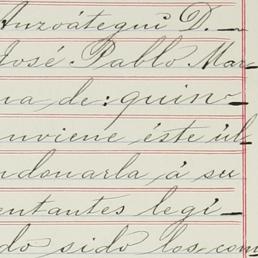 Anzoátegui D. —
José Pablo Mar-
va de: quin-
nviene éste úl-
ndonarla á su
entantes legi-
do sido los com